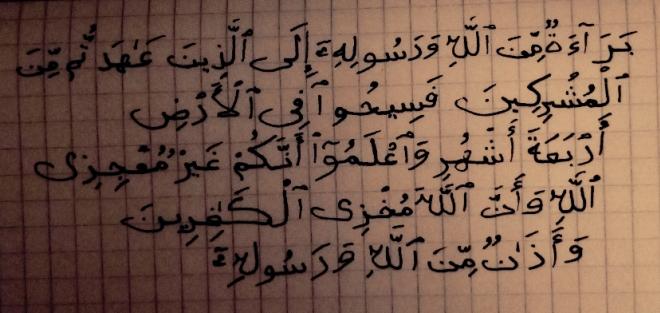 بَرَآءَةٌ مِّنَ ٱللَّهِ وَرَسُولِهِۦٓ إِلَى ٱلَّذِينَ عَـٰهَدتُّم مِّنَ
ٱلْمُشْرِكِينَ فَسِيحُوا۟ فِى ٱلْأَرْضِ
أَرْبَعَةَ أَشْهُرٍ وَٱعْلَمُوٓا۟ أَنَّكُمْ غَيْرُ مُعْجِزِى
ٱللَّهِ وَأَنَّ ٱللَّهَ مُخْزِى ٱلْكَـٰفِرِينَ
وَأَذَٰنٌ مِّنَ ٱللَّهِ وَرَسُولِهِۦٓ